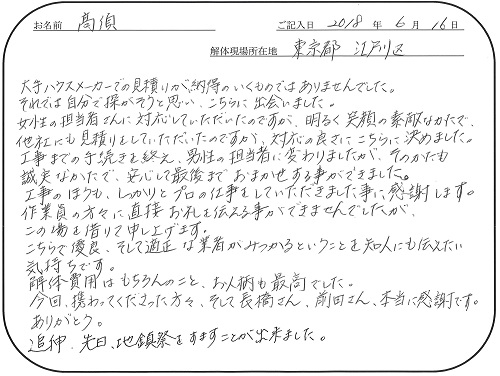 お名前 髙須 ご記入日 2018 年 6 月 16 日
解体現場所在地 東京都 江戸川区
大手ハウスメーカーでの見積りが納得のいくものではありませんでした。
それでは自分で探がそうと思い、こちらに出会いました。
女性の担当者さんに対応していただいたのですが、明るく笑顔の素敵なかたで、
他社にも見積りをしていただいたのですが、対応の良さにこちらに決めました。
工事までの手続きを終え、男性の担当者に変わりましたが、そのかたも
誠実なかたで、安心して最後までおまかせする事ができました。
工事のほうも、しっかりとプロの仕事をしていただきました事に感謝します。
作業員の方々に直接お礼を伝える事ができませんでしたが、
この場を借りて申し上げます。
こちらで優良、そして適正な業者がみつかるということを知人にも伝えたい
気持ちです。
解体費用はもちろんのこと、お人柄も最高でした。
今回、携わってくださった方々、そして長橋さん、前田さん、本当に感謝です。
ありがとう。
追伸、先日、地鎮祭をすますことが出来ました。